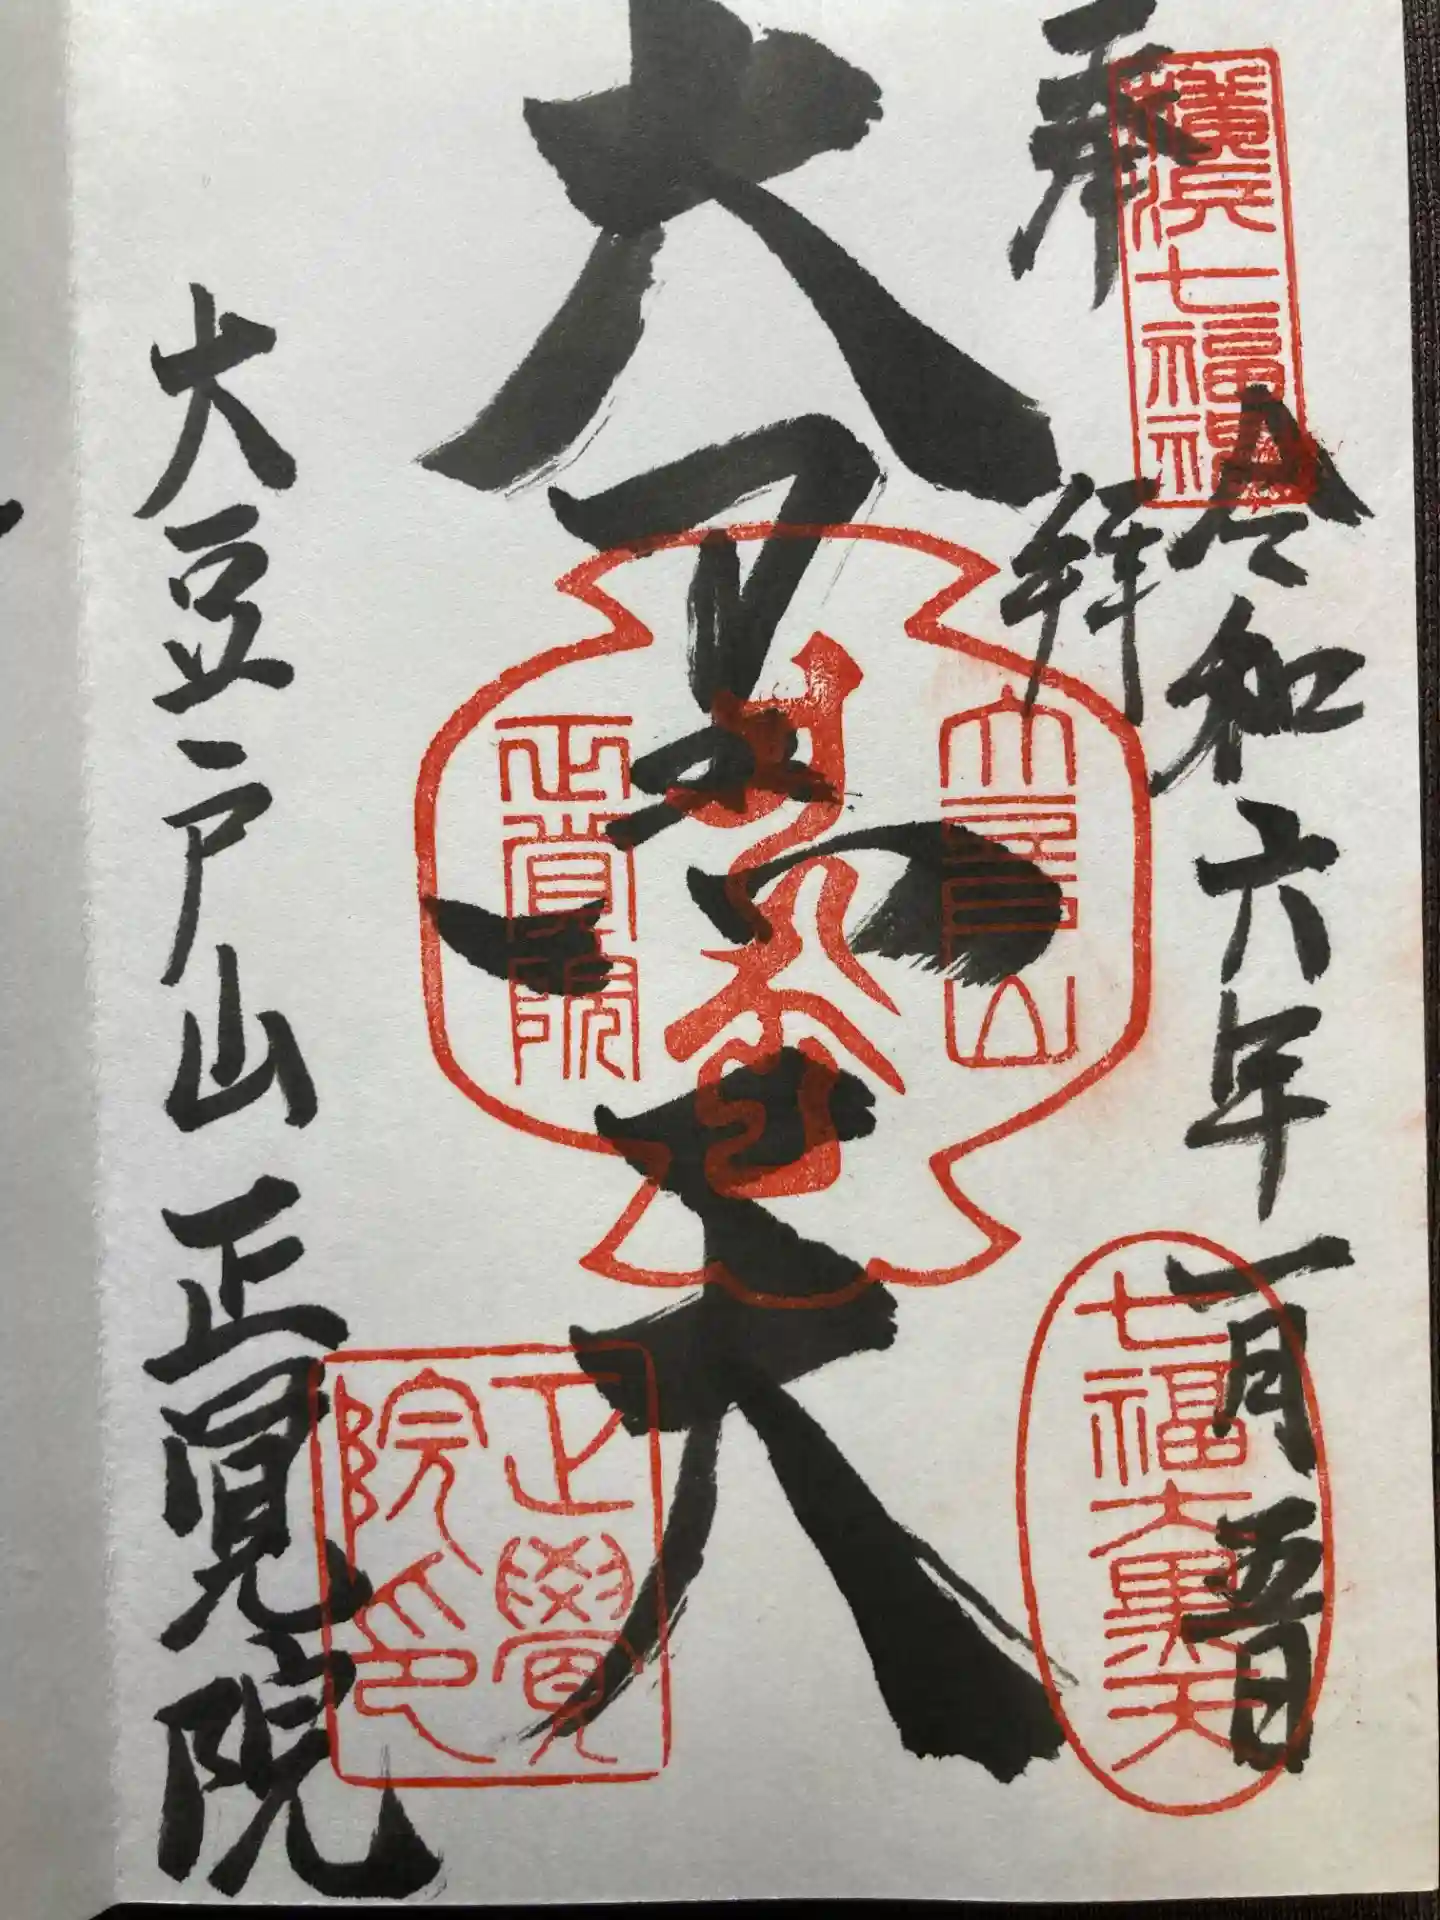 横浜七福神
奉拝
令和六年一月五日
七福大黒天
大黒天
大豆戸山
正覚院
大豆戸山 正覚院
正覺院印